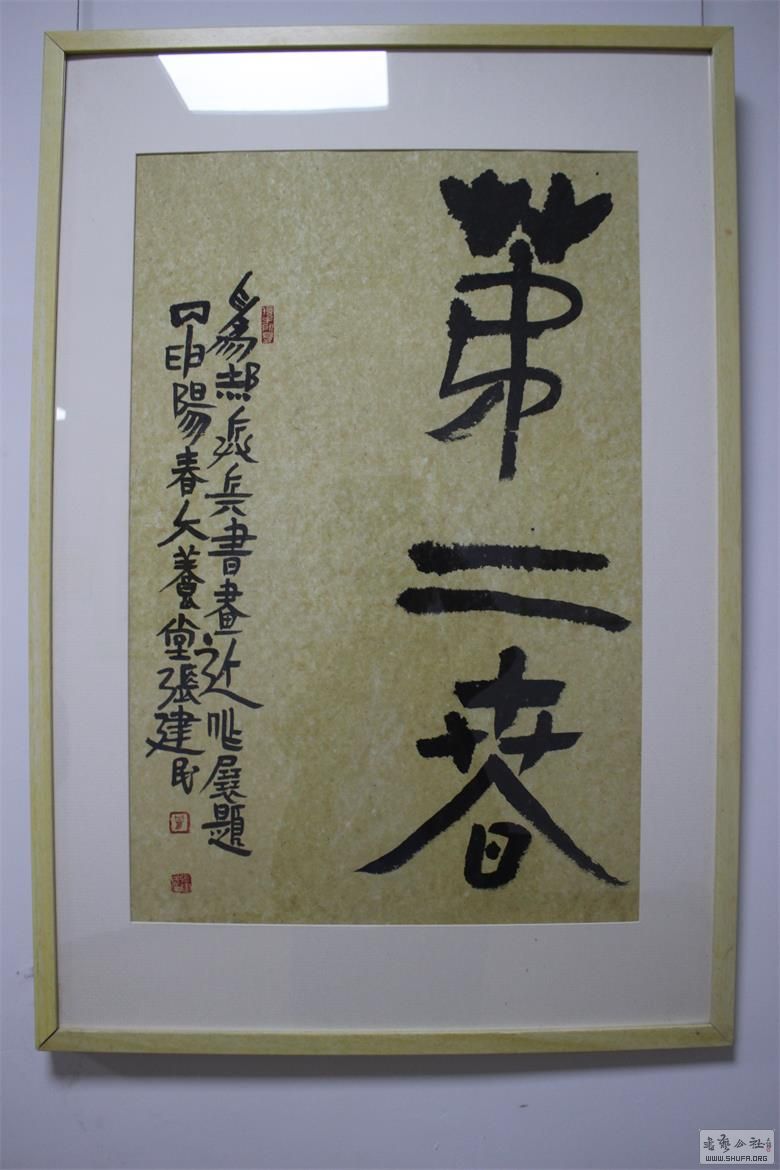 第二春
為郝兵書畫近作展題
申陽春大養堂張建民
書藝公社
WWW.SHUFA.ORG